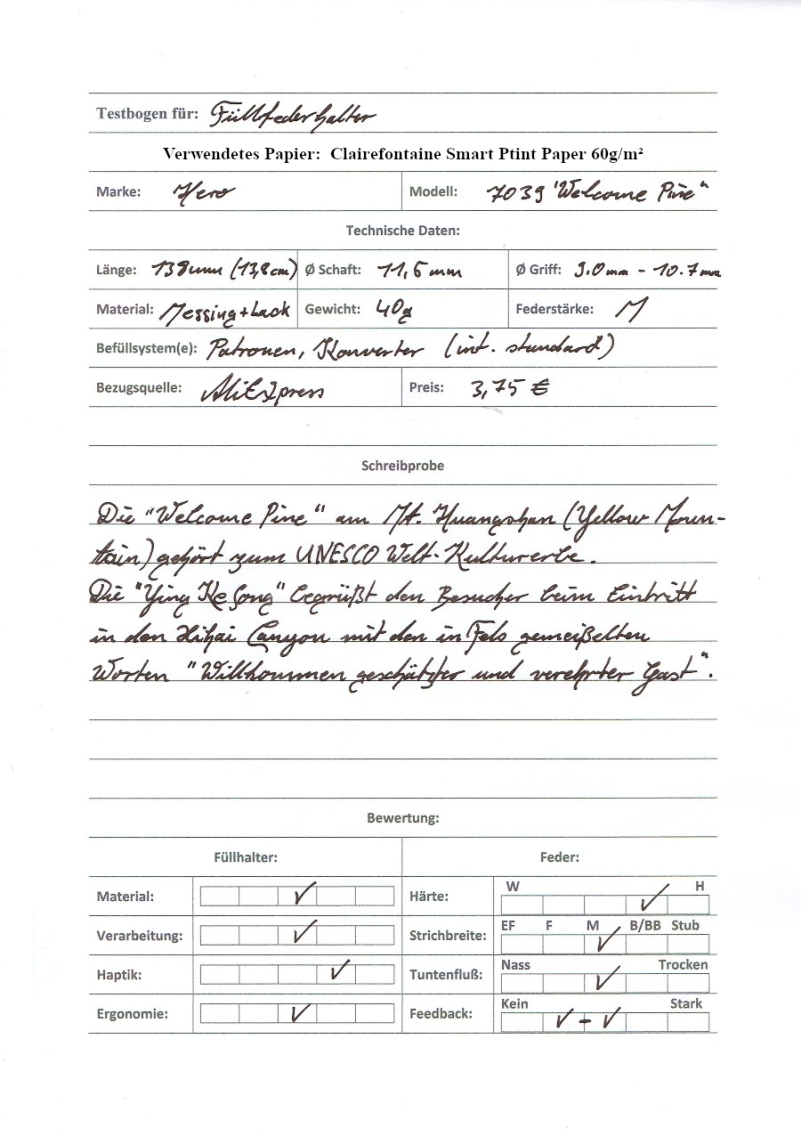 Testbogen für: Füllfederhalter
Verwendetes Papier: Clairefontaine Smart Ptint Paper 60g/m²
Marke: Hero Modell: 7039 "Welcome Pine"
Technische Daten:
Länge: 138mm (13,8cm) Ø Schaft: 11,6mm Ø Griff: 9.0mm - 10.7mm
Material: Messing+Lack Gewicht: 40g Federstärke: M
Befüllsystem(e): Patronen, Konverter (int. standard)
Bezugsquelle: AliExpress Preis: 3,75 €
Schreibprobe
Die "Welcome Pine" am Mt. Huangshan (Yellow Moun-
tain) gehört zum UNESCO Welt-Kulturerbe.
Die "Ying Ke Song" begrüßt den Besucher beim Eintritt
in den Xihai Canyon mit den in Fels gemeißelten
Worten "Willkommen geschätzter und verehrter Gast".
Bewertung:
Füllhalter: Feder:
Material: Härte: W H
Verarbeitung: Strichbreite: EF F M B/BB Stub
Haptik: Tuntenfluß: Nass Trocken
Ergonomie: Feedback: Kein Stark